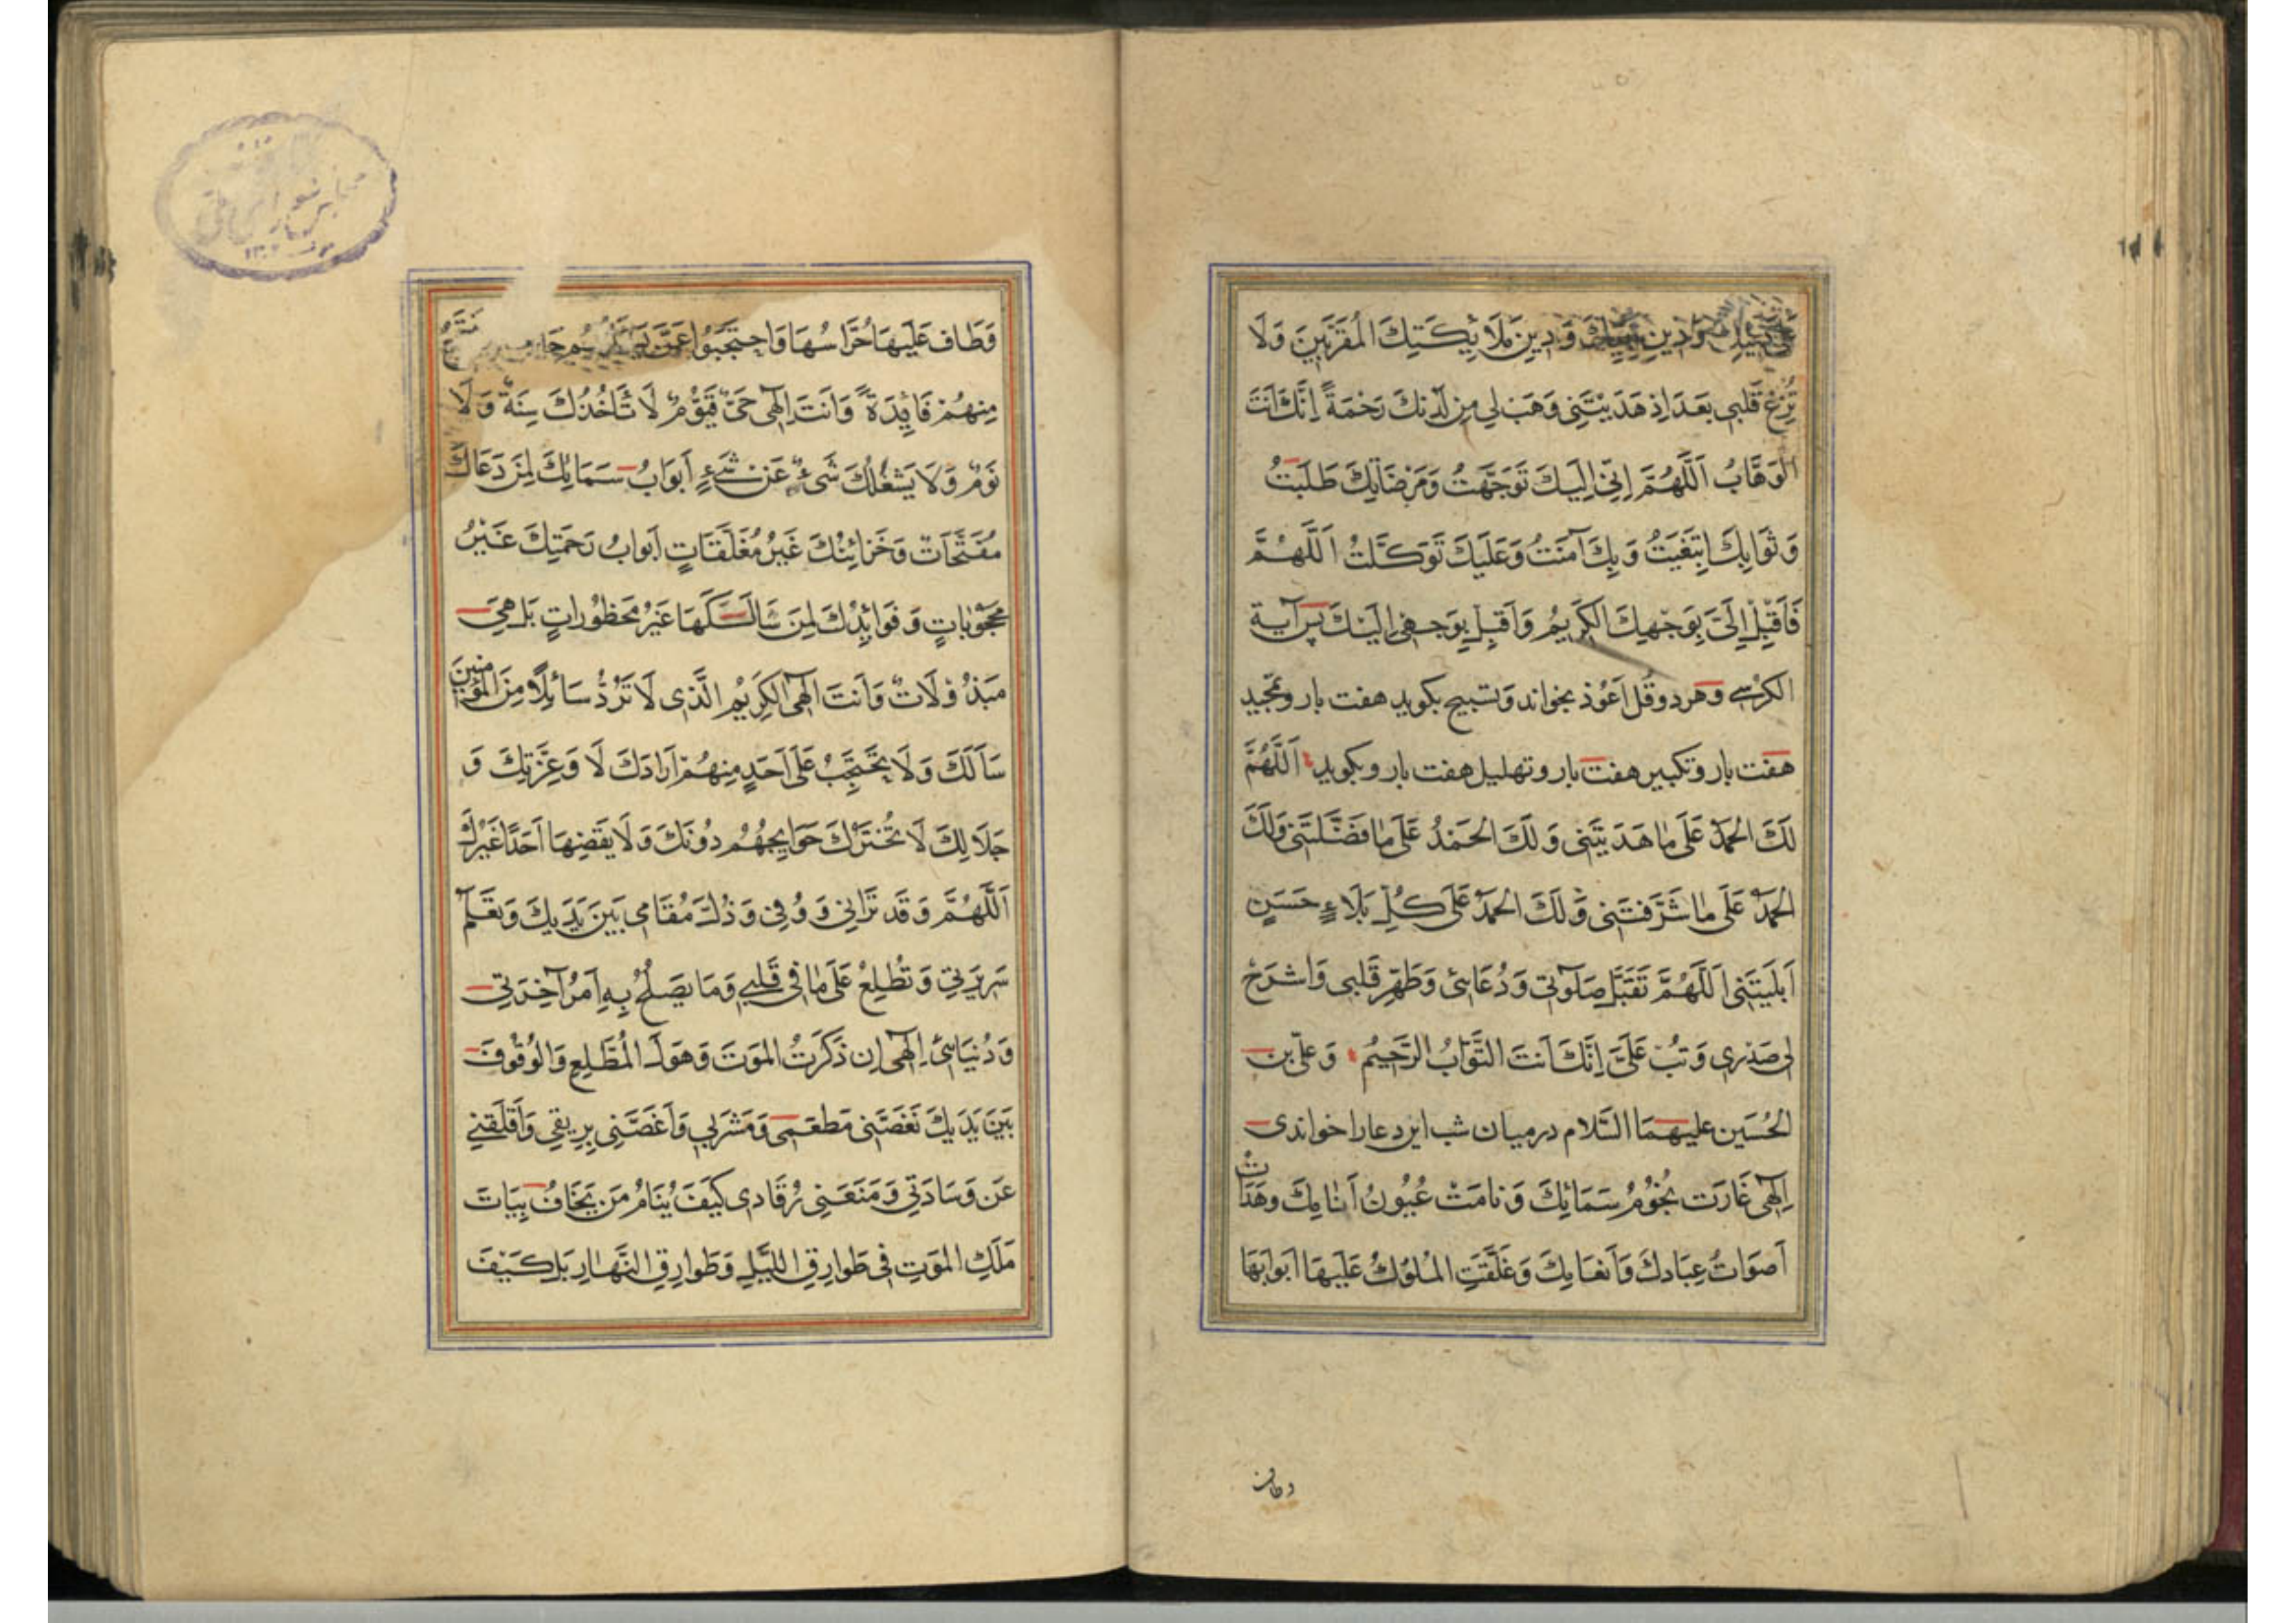 وَدِينِ وَدِينِ مَلَائِكَتِكَ الْمُقَرَّبِينَ وَلَا
تُزِغْ قَلْبِي بَعْدَ إِذْ هَدَيْتَنِي وَهَبْ لِي مِنْ لَدُنْكَ رَحْمَةً إِنَّكَ أَنْتَ
الْوَهَّابُ اَللَّهُمَّ إِنِّي إِلَيْكَ تَوَجَّهْتُ وَمَرْضَاتِكَ طَلَبْتُ
وَثَوَابَكَ ابْتَغَيْتُ وَبِكَ آمَنْتُ وَعَلَيْكَ تَوَكَّلْتُ اَللَّهُمَّ
فَأَقْبِلْ إِلَيَّ بِوَجْهِكَ الْكَرِيمِ وَأَقْبِلْ بِوَجْهِي إِلَيْكَ پس آية
الكرسي وهر دو قل اعوذ بخواند وتسبيح بكويد هفت بار وتمجيد
هفت بار وتكبير هفت بار وتهليل هفت بار وبكويد اَللَّهُمَّ
لَكَ الْحَمْدُ عَلَى مَا هَدَيْتَنِي وَلَكَ الْحَمْدُ عَلَى مَا فَضَّلْتَنِي وَلَكَ
الْحَمْدُ عَلَى مَا شَرَّفْتَنِي وَلَكَ الْحَمْدُ عَلَى كُلِّ بَلَاءٍ حَسَنٍ
أَبْلَيْتَنِي اَللَّهُمَّ تَقَبَّلْ صَلَوتِي وَدُعَائِي وَطَهِّرْ قَلْبِي وَاشْرَحْ
لِي صَدْرِي وَتُبْ عَلَيَّ إِنَّكَ أَنْتَ التَّوَّابُ الرَّحِيمُ وَعَلِيّ بن
الْحُسَيْن عليهما السّلام درميان شب اين دعارا خواندى
إِلَهِي غَارَتْ نُجُومُ سَمَائِكَ وَنَامَتْ عُيُونُ أَنَامِكَ وَهَدَأَتْ
أَصْوَاتُ عِبَادِكَ وَأَنْعَامِكَ وَغَلَّقَتِ الْمُلُوكُ عَلَيْهَا أَبْوَابَهَا
وطاف
وَطَافَ عَلَيْهَا حُرَّاسُهَا وَاحْتَجَبُوا عَمَّنْ
مِنْهُمْ فَائِدَةً وَأَنْتَ إِلَهِي حَيٌّ قَيُّومٌ لَا تَأْخُذُكَ سِنَةٌ وَلَا
نَوْمٌ وَلَا يَشْغَلُكَ شَيْءٌ عَنْ شَيْءٍ أَبْوَابُ سَمَائِكَ لِمَنْ دَعَاكَ
مُفَتَّحَاتٌ وَخَزَائِنُكَ غَيْرُ مُغَلَّقَاتٍ أَبْوَابُ رَحْمَتِكَ غَيْرُ
مَحْجُوبَاتٍ وَفَوَائِدُكَ لِمَنْ سَأَلَكَهَا غَيْرُ مَحْظُورَاتٍ بَلْ هِيَ
مَبْذُولَاتٌ وَأَنْتَ إِلَهِي الْكَرِيمُ الَّذِي لَا تَرُدُّ سَائِلًا مِنَ الْمُؤْمِنِينَ
سَأَلَكَ وَلَا يَحْتَجِبُ عَلَى أَحَدٍ مِنْهُمْ أَرَادَكَ لَا وَعِزَّتِكَ وَ
جَلَالِكَ لَا تُخْتَزَلُ حَوَائِجُهُمْ دُونَكَ وَلَا يَقْضِيهَا أَحَدًا غَيْرُكَ
اَللَّهُمَّ وَقَدْ تَرَانِي وَوُقُوفِي وَذُلَّ مَقَامِي بَيْنَ يَدَيْكَ وَتَعْلَمُ
سَرِيرَتِي وَتَطَّلِعُ عَلَى مَا فِي قَلْبِي وَمَا يَصْلُحُ بِهِ أَمْرُ آخِرَتِي
وَدُنْيَايَ إِلَهِي إِنْ ذَكَرْتُ الْمَوْتَ وَهَوْلَ الْمُطَّلَعِ وَالْوُقُوفَ
بَيْنَ يَدَيْكَ نَغَّصَنِي مَطْعَمِي وَمَشْرَبِي وَأَغَصَّنِي بِرِيقِي وَأَقْلَقَنِي
عَنْ وَسَادَتِي وَمَنَعَنِي رُقَادِي كَيْفَ يَنَامُ مَنْ يَخَافُ بَيَاتَ
مَلَكِ الْمَوْتِ فِي طَوَارِقِ اللَّيْلِ وَطَوَارِقِ النَّهَارِ بَلْ كَيْفَ